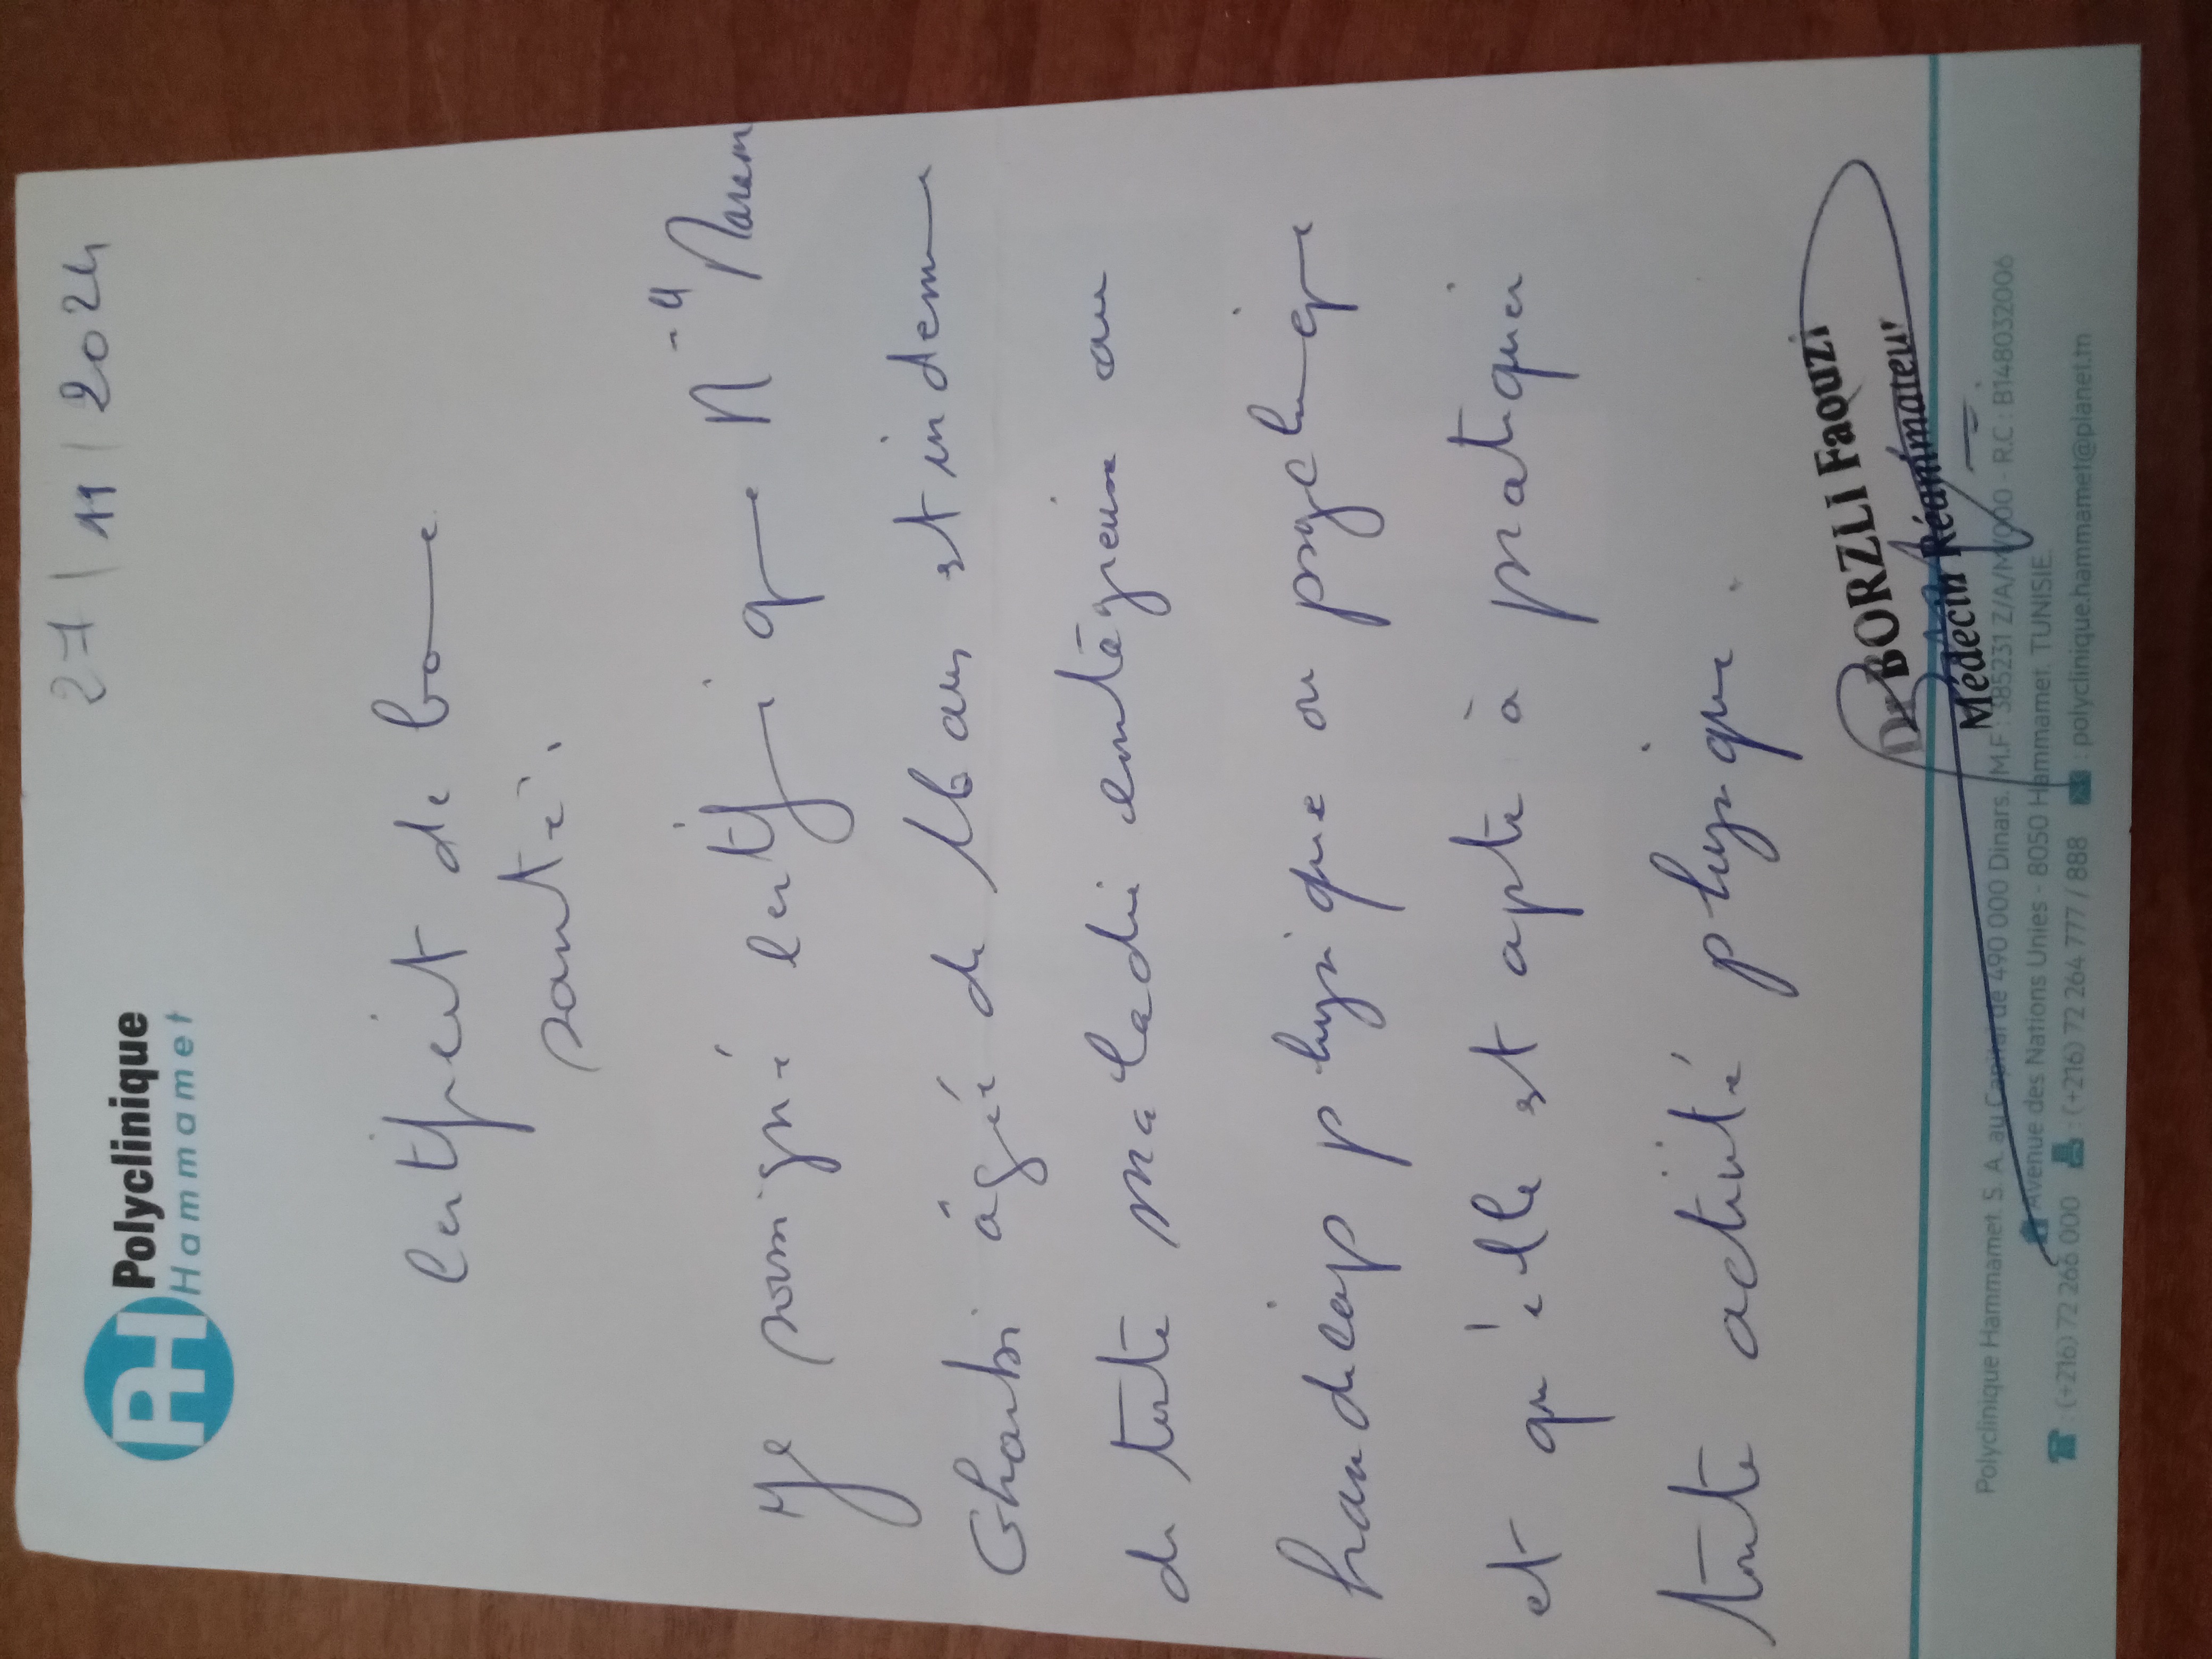 Polyclinique
Hammamet
27/11/2024
Certificat de bonne
santé.
Je soussigné certifie que Mlle Maram
Gharbi âgée de 16 ans est indemne
de toute maladie contagieuse ou
handicap physique ou psychique
et qu'elle est apte à pratiquer
toute activité physique.
Dr BORZLI Faouzi
Médecin Réanimateur
Polyclinique Hammamet. S. A. au Capital de 490 000 Dinars. M.F : 385231 Z/A/M/000 - R.C : B148032006
Avenue des Nations Unies - 8050 Hammamet. TUNISIE.
: (+216) 72 266 000 : (+216) 72 264 777 / 888 : polyclinique.hammamet@planet.tn